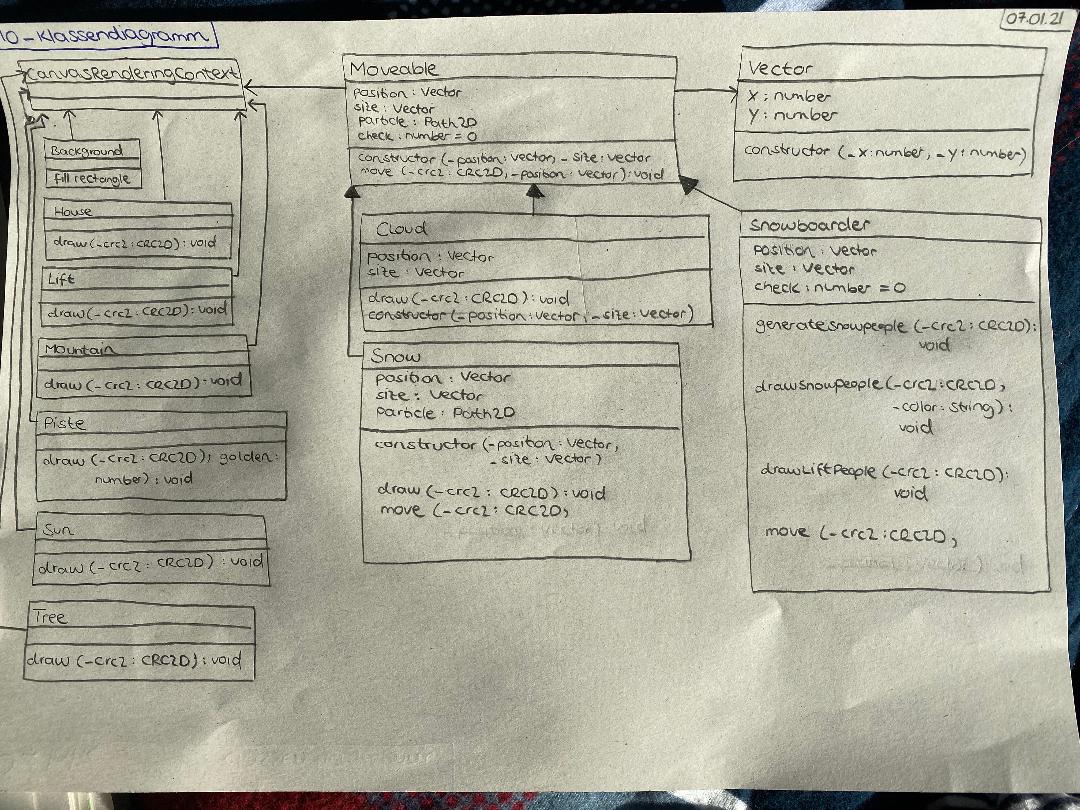 10-Klassendiagramm
07.01.21
CanvasRenderingContext
Background
fill rectangle
House
draw(-crc2: CRC2D): void
Lift
draw(-crc2: CRC2D): void
Mountain
draw (-crc2: CRC2D): void
Piste
draw (-crc2: CRC2D); golden:
number): void
Sun
draw (-crc2: CRC2D): void
Tree
draw (-crc2: CRC2D): void
Moveable
position: Vector
size: Vector
particle: Path2D
check: number = 0
constructor (-position: vector, -size: vector
move (-crc2: CRC2D, -position: vector): void
Cloud
position: Vector
size: Vector
draw (-crc2: CRC2D): void
constructor (-position: vector, -size: vector)
Snow
position: Vector
size: Vector
particle: Path2D
constructor (-position: Vector,
-size: Vector)
draw (-crc2: CRC2D): void
move (-crc2: CRC2D,
Vector
X: number
Y: number
constructor (-X: number, -Y: number)
Snowboarder
position: Vector
size: Vector
check: number = 0
generatesnowpeople (-crc2: CRC2D):
void
drawsnowpeople (-crc2: CRC2D,
-color: string):
void
drawLiftPeople (-crc2: CRC2D):
void
move (-crc2: CRC2D,